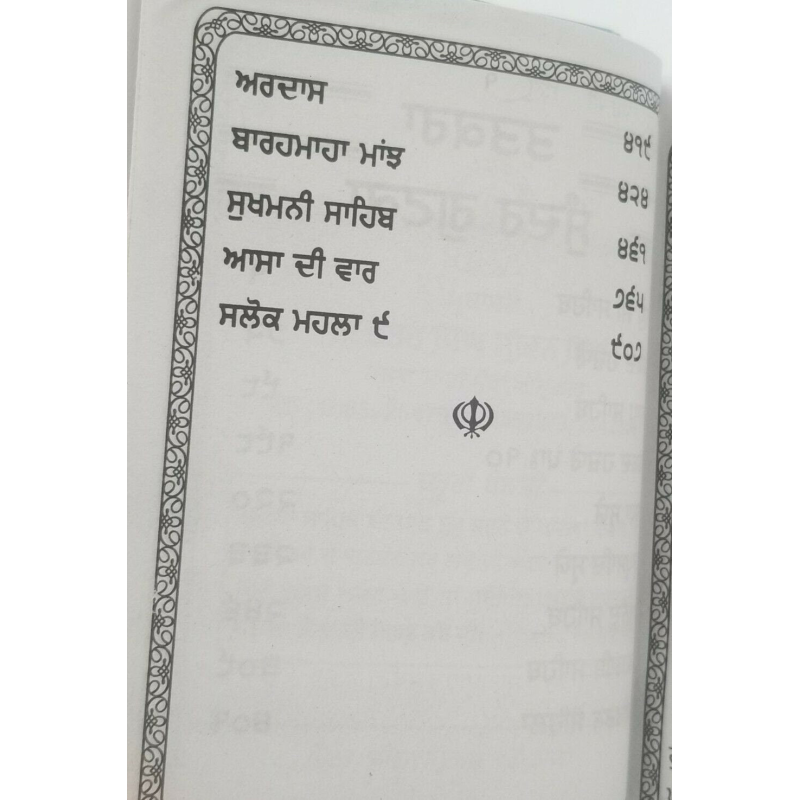 ਅਰਦਾਸ ੪੧੯
ਬਾਰਹਮਾਹਾ ਮਾਂਝ ੪੨੪
ਸੁਖਮਨੀ ਸਾਹਿਬ ੪੬੧
ਆਸਾ ਦੀ ਵਾਰ ੭੬੫
ਸਲੋਕ ਮਹਲਾ ੯ ੯੦੭